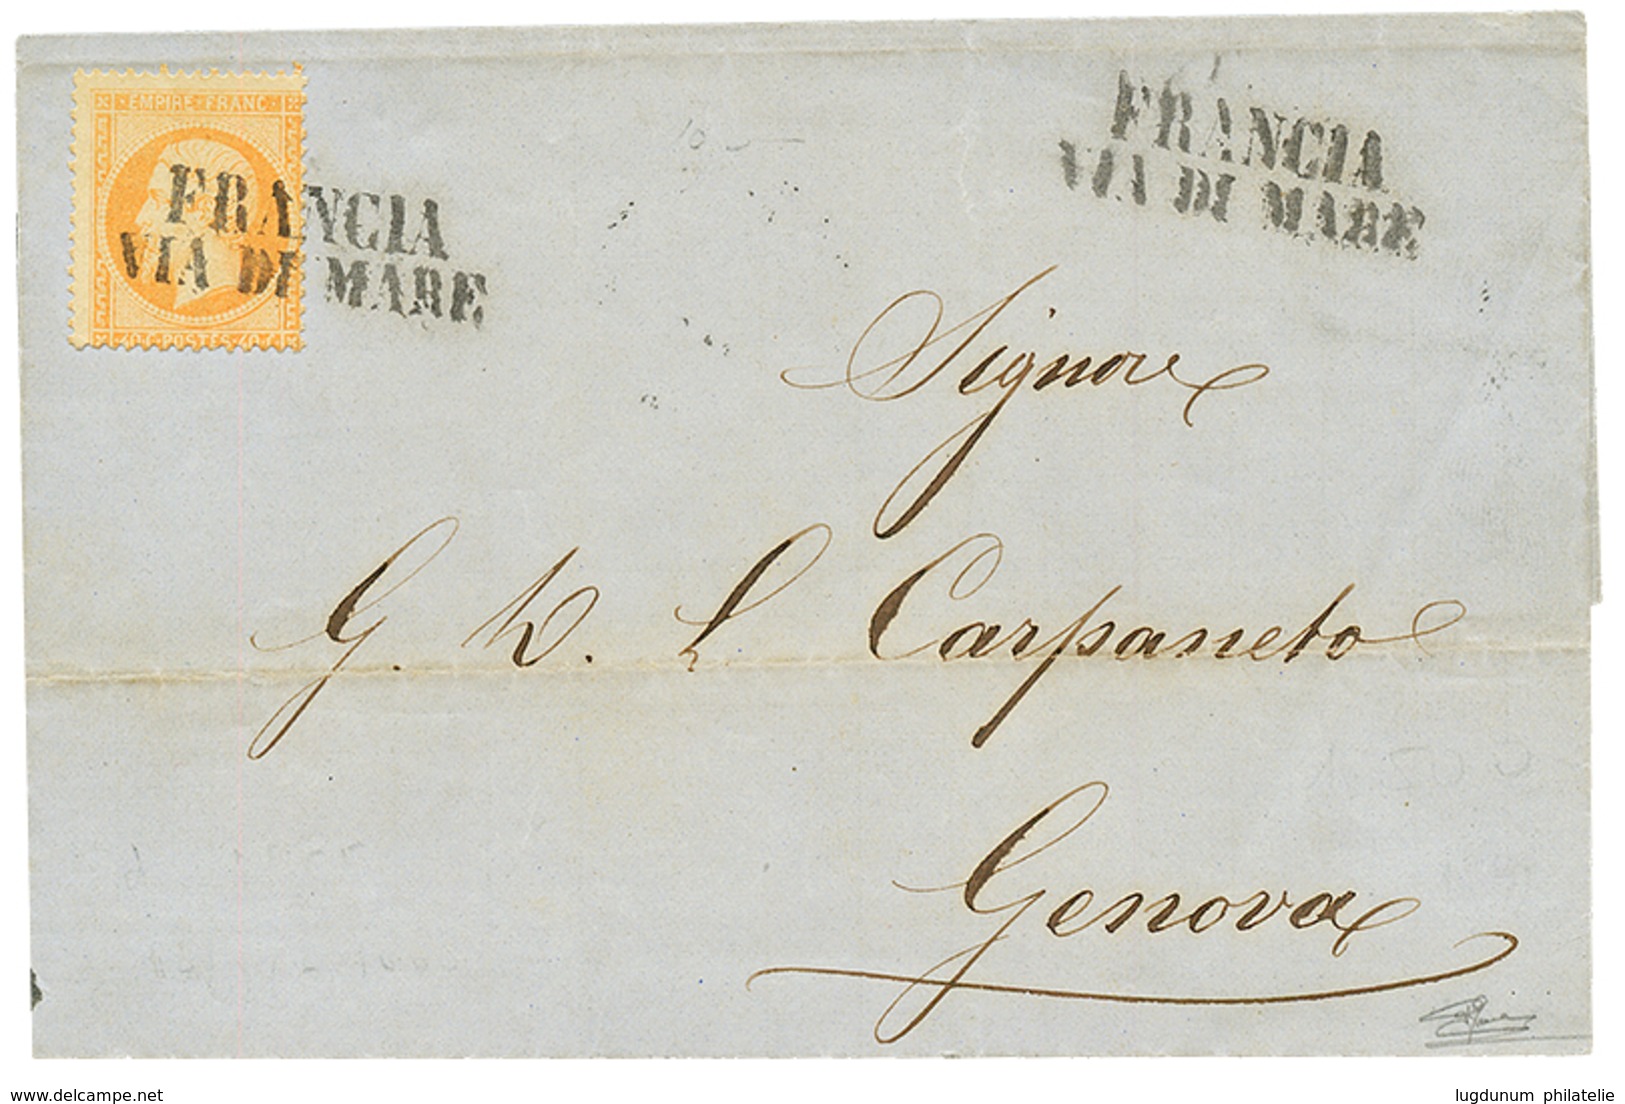 EMPIRE FRANC.
FRANCIA
VIA DI MARE
40 C. POSTES 40 C.
10
FRANCIA
VIA DI MARE
Signore
G. W. L Carpaneto
Genova
www.delcampe.net
lugdunum philatelie